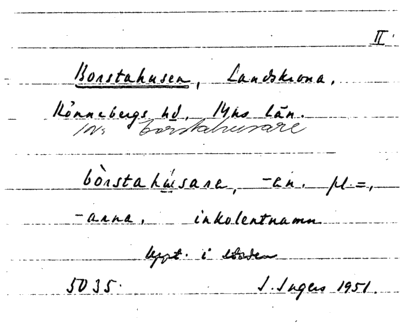 II.
Borstahusen, Landskrona,
Rönnebergs hd. Mhs län.
inv. borstahusare
bòrstahúsara, -an. pl =,
-arna. inkolentnamn
uppt. i staden
5035. I. Ingers 1951.